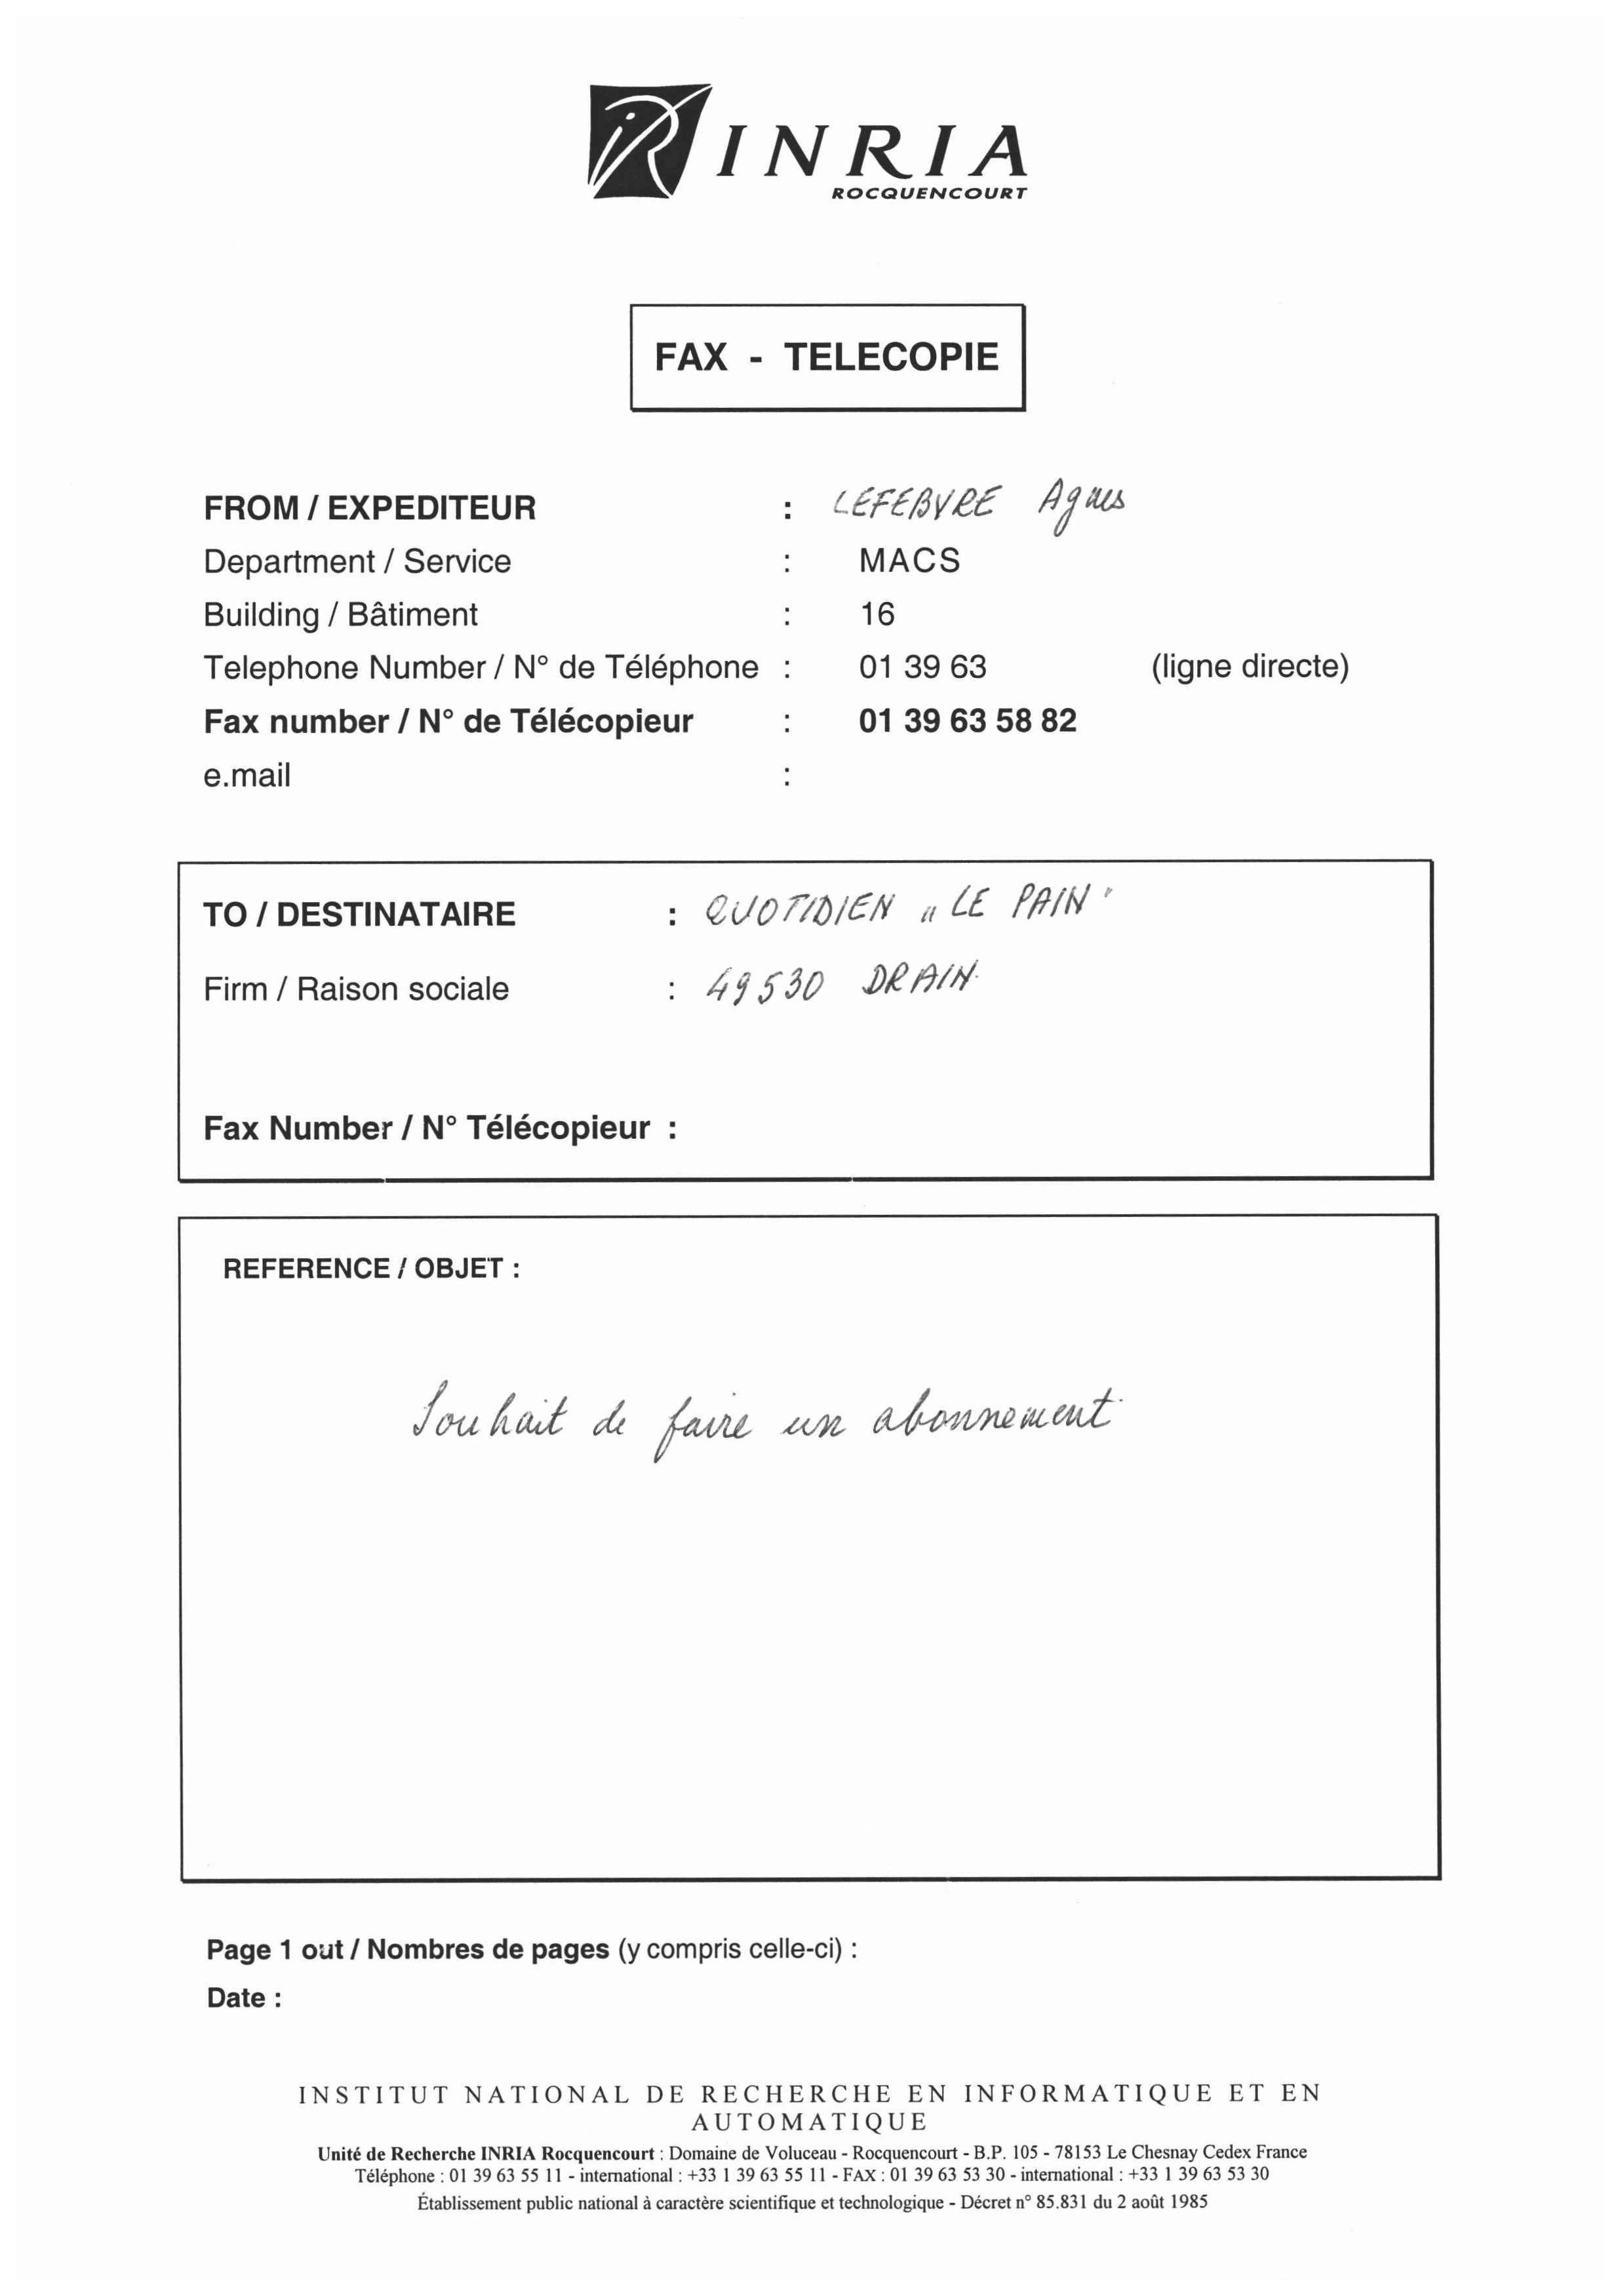 INRIA
ROCQUENCOURT
FAX - TELECOPIE
FROM / EXPEDITEUR : LEFEBVRE Agnes
Department / Service : MACS
Building / Bâtiment : 16
Telephone Number / N° de Téléphone : 01 39 63 (ligne directe)
Fax number / N° de Télécopieur : 01 39 63 58 82
e.mail :
TO / DESTINATAIRE : QUOTIDIEN "LE PAIN"
Firm / Raison sociale : 49530 DRAIN
Fax Number / N° Télécopieur :
REFERENCE / OBJET :
Souhait de faire un abonnement
Page 1 out / Nombres de pages (y compris celle-ci) :
Date :
INSTITUT NATIONAL DE RECHERCHE EN INFORMATIQUE ET EN
AUTOMATIQUE
Unité de Recherche INRIA Rocquencourt : Domaine de Voluceau - Rocquencourt - B.P. 105 - 78153 Le Chesnay Cedex France
Téléphone : 01 39 63 55 11 - international : +33 1 39 63 55 11 - FAX : 01 39 63 53 30 - international : +33 1 39 63 53 30
Établissement public national à caractère scientifique et technologique - Décret n° 85.831 du 2 août 1985